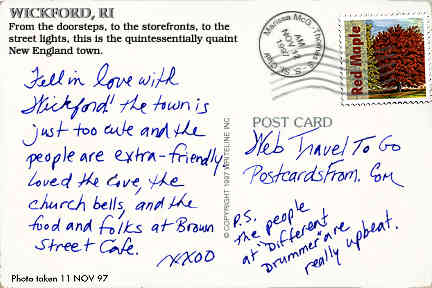 WICKFORD, RI
From the doorsteps, to the storefronts, to the
street lights, this is the quintessentially quaint
New England town.
Fell in love with
Wickford! the town is
just too cute and the
people are extra-friendly
Loved the Cove, the
church bells, and the
food and folks at Brown
Street Cafe.
XXOO
Photo taken 11 NOV 97
© COPYRIGHT 1997 WRITELINE INC
AM
NOV 12
1997
Red Maple
POST CARD
Web Travel To Go
PostcardsFrom.Com
P.S.
the people
at "Different
Drummer" are
really upbeat.